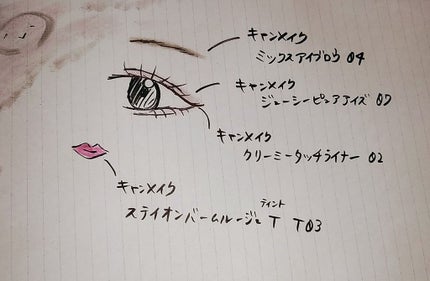 キャンメイク
ミックスアイブロウ 04
キャンメイク
ジューシーピュアアイズ 07
キャンメイク
クリーミータッチライナー 02
キャンメイク
ティント
ステイオンバームルージュ T T03